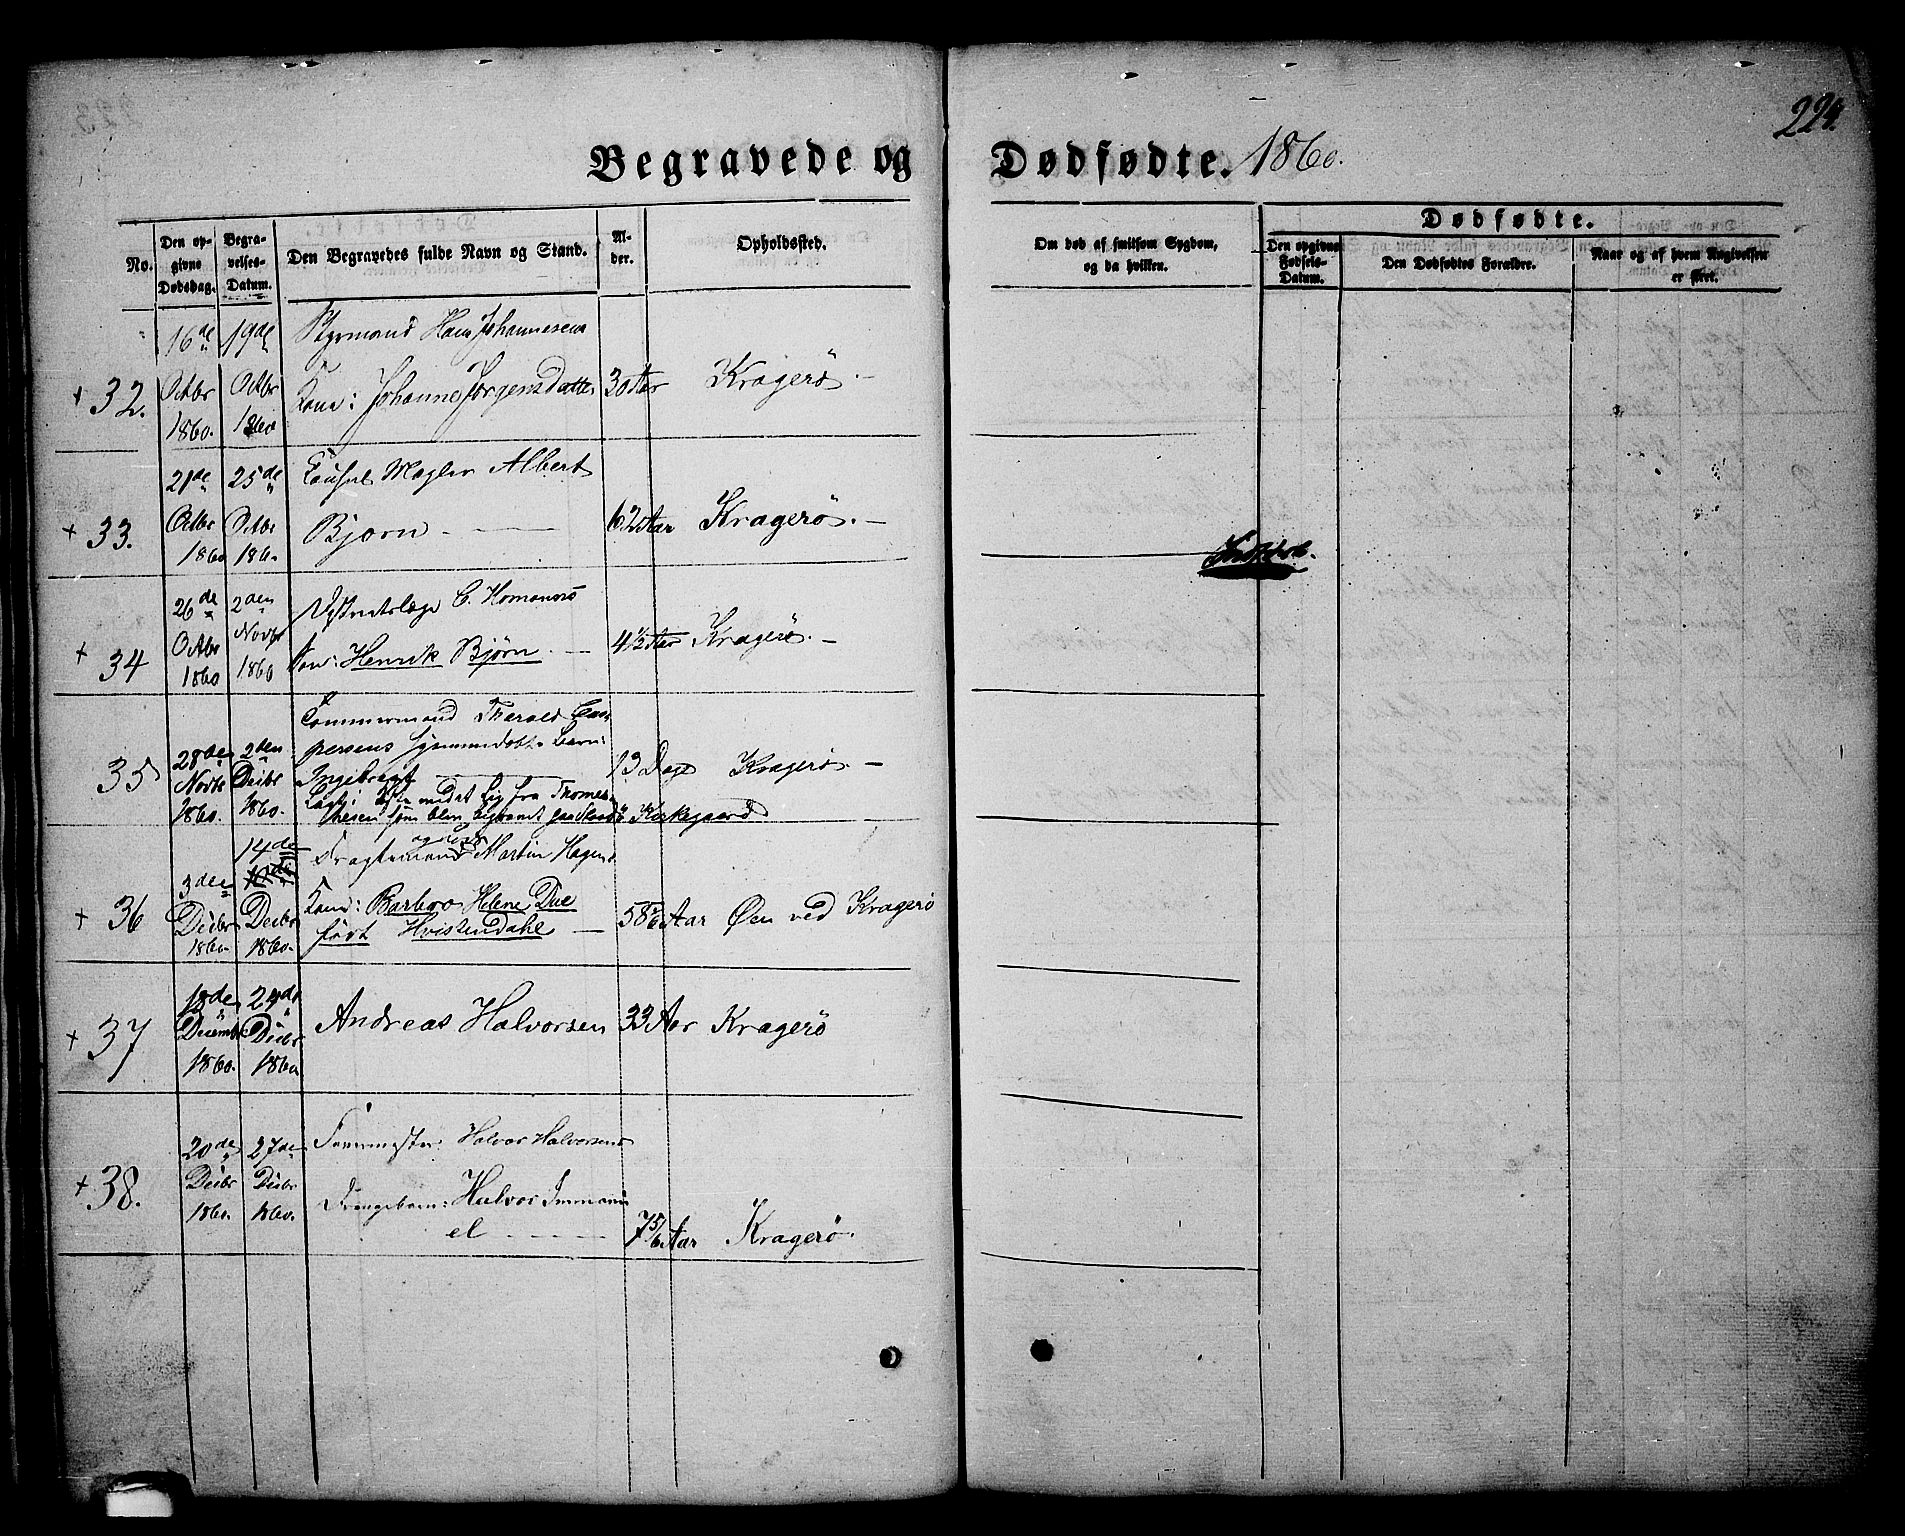 224.
Begravede og Dødfødte. 1860.
No.
Den opgivne Dødsdag.
Begravelses-Datum.
Den Begravedes fulde Navn og Stand.
Alder.
Opholdssted.
Om død af smitsom Sygdom, og da hvilken.
Dødfødte.
Den opgivne Fødsels-Datum.
Den Dødfødtes Forældre.
Naar og af hvem Angivelsen er skeet.
+ 32. 16de Octbr 1860. 19de Octbr 1860
Styrmand Hans Johannesens
Kone: Johanne Jørgensdatter 30 Aar Kragerø. —
+ 33. 21de Octbr 1860 25de Octbr 1860
Consul Mægler Albert
Bjørn — 62 Aar Kragerø. —
+ 34 26de Octbr 1860 2den Novbr 1860
Districtslæge C. Homanns
Søn: Henrik Bjørn. — 4½ Aar Kragerø. —
35 28de Novbr 1860. 2den Decbr 1860.
Tømmermand Tharald Cas-
persens hjemmedøbte Barn:
Ingebregt — 13 Dage Kragerø —
fra Thomes-
som blev begravet paa Kirkegaard
+ 36 3den Decbr 1860. 14de Decbr 1860.
Fragtemand Martin Hagens
Kone: Barbro Helene Due
født Hvistendahl — 58 Aar Øen ved Kragerø
+ 37 18de Decembr 1860. 24de Decbr 1860
Andreas Halvorsen 33 Aar Kragerø
+ 38. 20de Decbr 1860. 27de Decbr 1860.
Halvor Halvorsens
Drengebarn: Halvor Immanu
el — 7 5/6 Aar Kragerø.